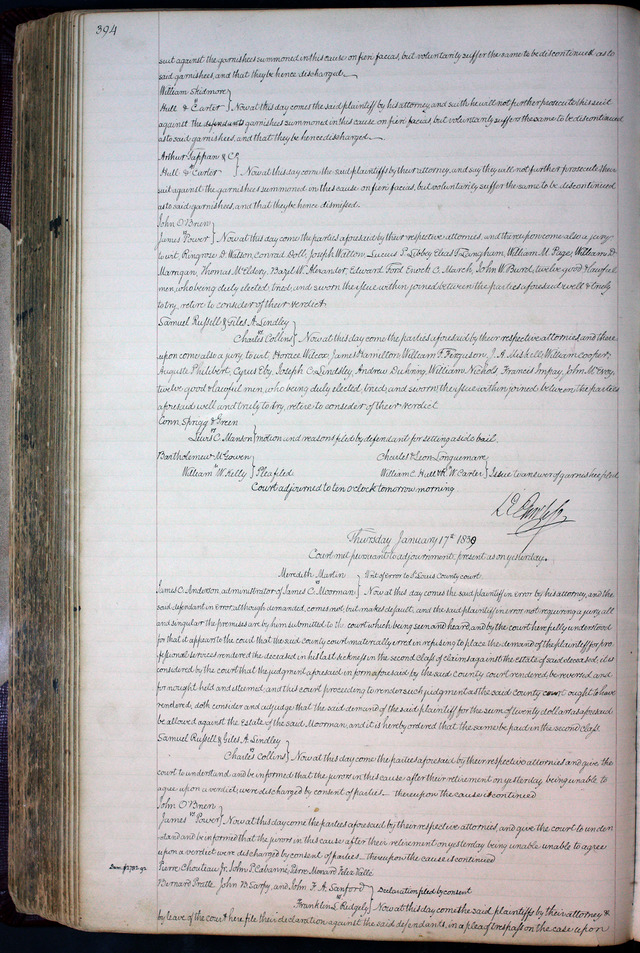 394
suit against the garnishees summoned in this cause on fieri facias, but voluntarily suffer the same to be discontinued as to
said garnishees, and that they be hence discharged.
William Skidmore
vs
Hull & Carter } Now at this day comes the said plaintiff by his attorney, and saith he will not further prosecute his suit
against the defendants garnishees summoned in this cause on fieri facias, but voluntarily suffers the same to be discontinued
as to said garnishees, and that they be hence discharged
Arthur Tappan & Co
vs
Hull & Carter } Now at this day come the said plaintiffs by their attorney, and say they will not further prosecute their
suit against the garnishees summoned in this cause on fieri facias, but voluntarily suffer the same to be discontinued
as to said garnishees, and that they be hence dismissed.
John O'Brien
vs
James Power } Now at this day come the parties aforesaid by their respective attornies, and thereupon come also a jury
to wit, Ringrose D. Watson, Conrad Doll, Joseph Walton, Lucius P. Libbey, Elias T. Langham, William M. Page, William D.
Marnigan, Thomas McEldery, Bazil W. Alexander, Edward Ford, Enoch C. March, John W. Burd, twelve good & lawful
men, who being duly elected, tried, and sworn the issue within joined between the parties aforesaid well & truly
to try, retire to consider of their verdict.
Samuel Russell & Giles A. Lindley
vs
Charles Collins } Now at this day come the parties aforesaid by their respective attornies and there
upon come also a jury to wit, Horace Wilcox, James Hamilton, William F. Ferguson, J. A. Miskell, William Cooper,
Auguste Philibert, Cyrus Eby, Joseph C. Lindsley, Andrew Duhring, William Nichols, Frances Impay, John McEvoy,
twelve good & lawful men, who being duly elected, tried, and sworn, the issue within joined between the parties
aforesaid well and truly to try, retire to consider of their verdict
Conn, Sprigg & Green
vs
Lewis C. Manson } motion and reasons filed by defendant for setting aside bail.
Bartholemew McGowen
vs
William W. Kelly } Plea filed
Charles & Leon Longuemare
vs
William C. Hull & R. W. Carter } Issue to answer of garnishees filed
Court adjourned to ten o'clock tomorrow morning
Thursday January 17th 1839
Court met pursuant to adjournment, present as on yesterday.
Meredith Martin
vs
Writ of error to St Louis County court.
James C. Anderson, administrator of James C. Moorman } Now at this day comes the said plaintiff in error by his attorney, and the
said defendant in error although demanded, comes not, but makes default, and the said plaintiff in error not requiring a jury all
and singular the premises are by him submitted to the court which being seen and heard, and by the court here fully understood
for that it appears to the court that the said county court materially erred in refusing to place the demand of the plaintiff for pro-
fessional services rendered the deceased in his last sickness in the second class of claims against the estate of said deceased, it is
considered by the court that the judgment aforesaid in form aforesaid by the said county court rendered be reversed and
for nought held and esteemed, and this court proceeding to render such judgment as the said county court ought to have
rendered, doth consider and adjudge that the said demand of the said plaintiff for the sum of twenty dollars as aforesaid
be allowed against the Estate of the said Moorman, and it is hereby ordered that the same be paid in the second class.
Samuel Russell & Giles A. Lindley
vs
Charles Collins } Now at this day come the parties aforesaid by their respective attornies and give the
court to understand and be informed that the jurors in this cause after their retirement on yesterday, being unable to
agree upon a verdict, were discharged by consent of parties— thereupon the cause is continued
John O'Brien
vs
James Power } Now at this day come the parties aforesaid by their respective attornies, and give the court to under
stand and be informed that the jurors in this cause after their retirement on yesterday being unable to agree
upon a verdict were discharged by consent of parties— thereupon the cause is continued
Pierre Chouteau Jr, John P. Cabanné, Pierre Menard Felix Vallé
Bernard Pratte John B. Sarpy, and John F. A. Sanford } Declaration filed by consent
vs
Franklin L. Ridgely } Now at this day come the said plaintiffs by their attorney &
by leave of the court here file their declaration against the said defendants, in a plea of trespass on the case upon